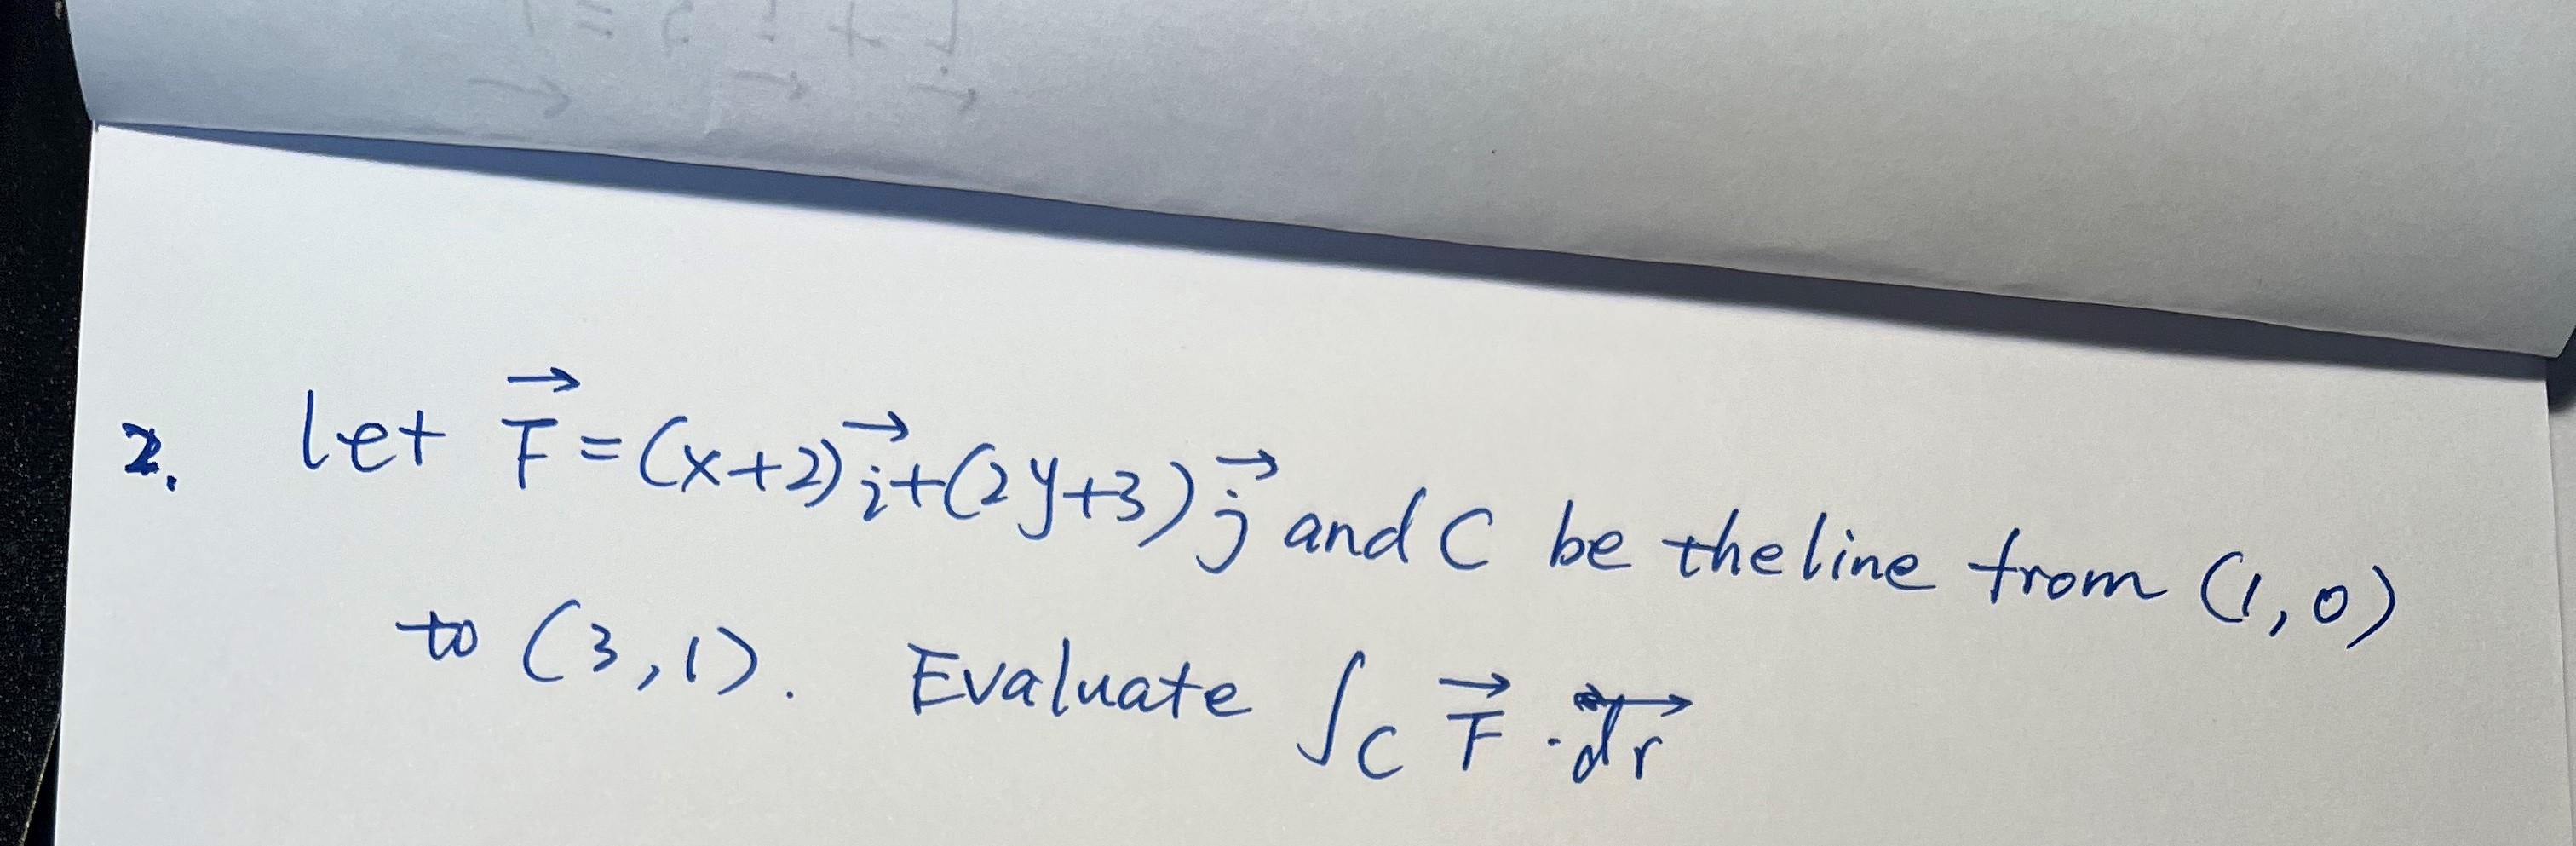 2. let $\vec{F}=(x+2)\vec{i}+(2y+3)\vec{j}$ and C be the line from (1,0)
to (3,1). Evaluate $\int_C \vec{F}\cdot\vec{dr}$